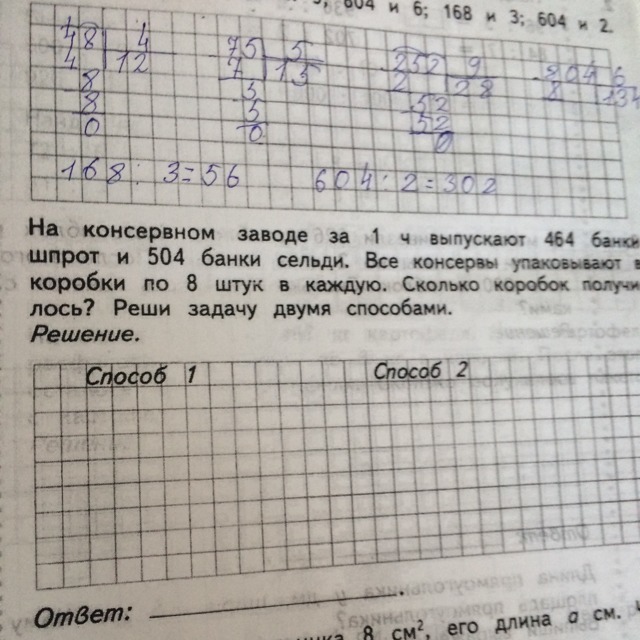 604 и 6; 168 и 3; 604 и 2.
48 4 75 5 252 9 804 6
4 12 7 15 2 28 8 134
8 5 52
8 5 52
0 0 0
168 : 3 = 56 604 : 2 = 302
На консервном заводе за 1 ч выпускают 464 банки
шпрот и 504 банки сельди. Все консервы упаковывают в
коробки по 8 штук в каждую. Сколько коробок получи
лось? Реши задачу двумя способами.
Решение.
Способ 1 Способ 2
Ответ:
8 см², его длина a см.